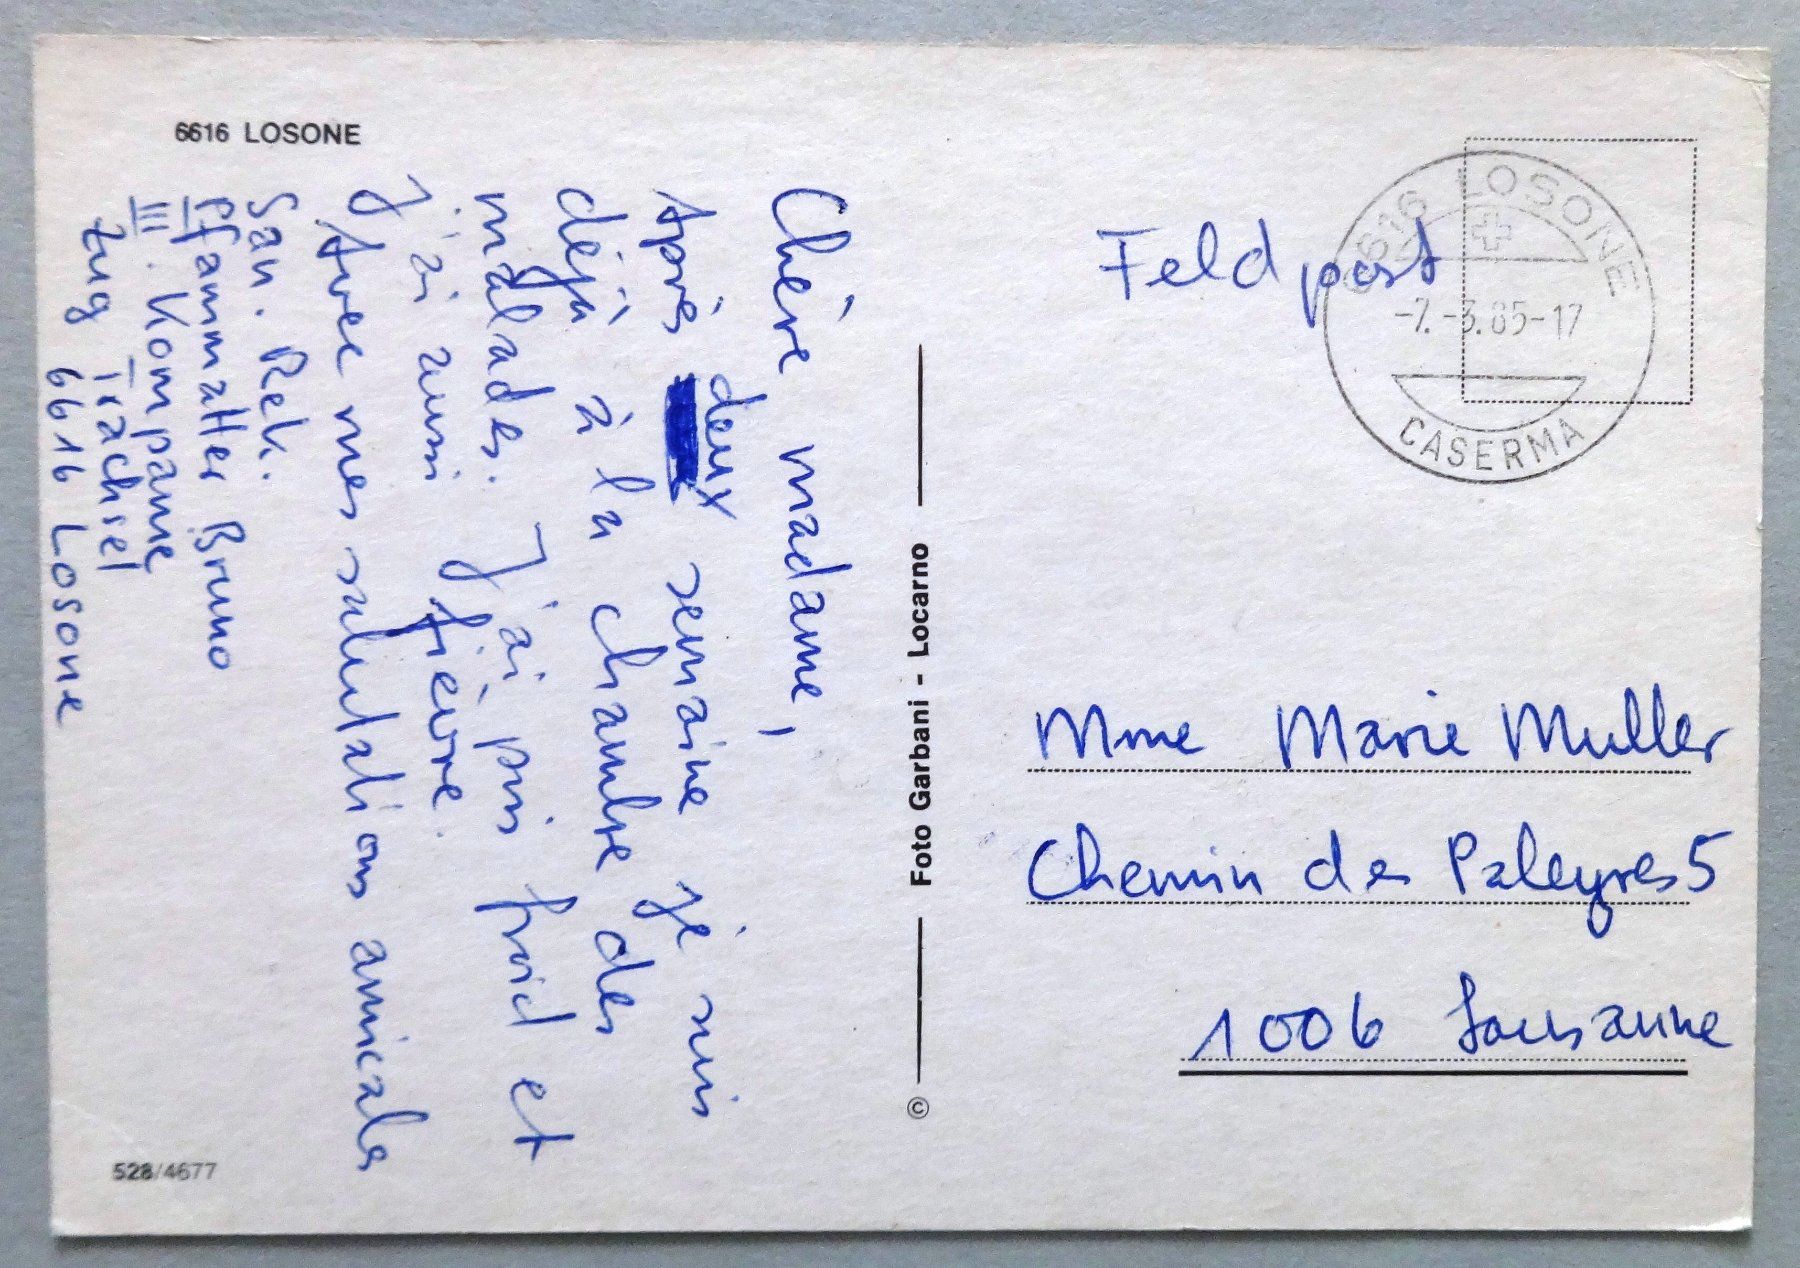 6616 LOSONE
Chère madame,
Après deux semaine je suis
déjà à la chambre des
malades. J'ai pris froid et
j'ai aussi fièvre.
Avec mes salutations amicales
San. Rek.
Pfammatter Bruno
III. Kompanie
Zug Trachsel
6616 Losone
528/4677
Foto Garbani - Locarno
©
Feldpost
6616 LOSONE
-7.-3.85-17
CASERMA
Mme Marie Muller
Chemin des Paleyres 5
1006 Lausanne